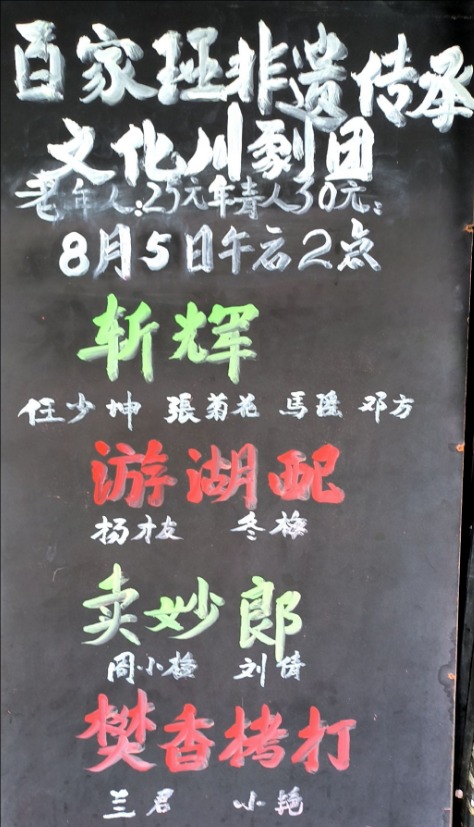 百家班非遗传承
文化川劇团
老年人:25元年青人30元:
8月5日午后2点
斩辉
任少坤 張菊花 馬瑶 邓方
游湖配
杨才友 冬梅
卖妙郎
周小梅 刘倩
樊香拷打
兰君 小艳